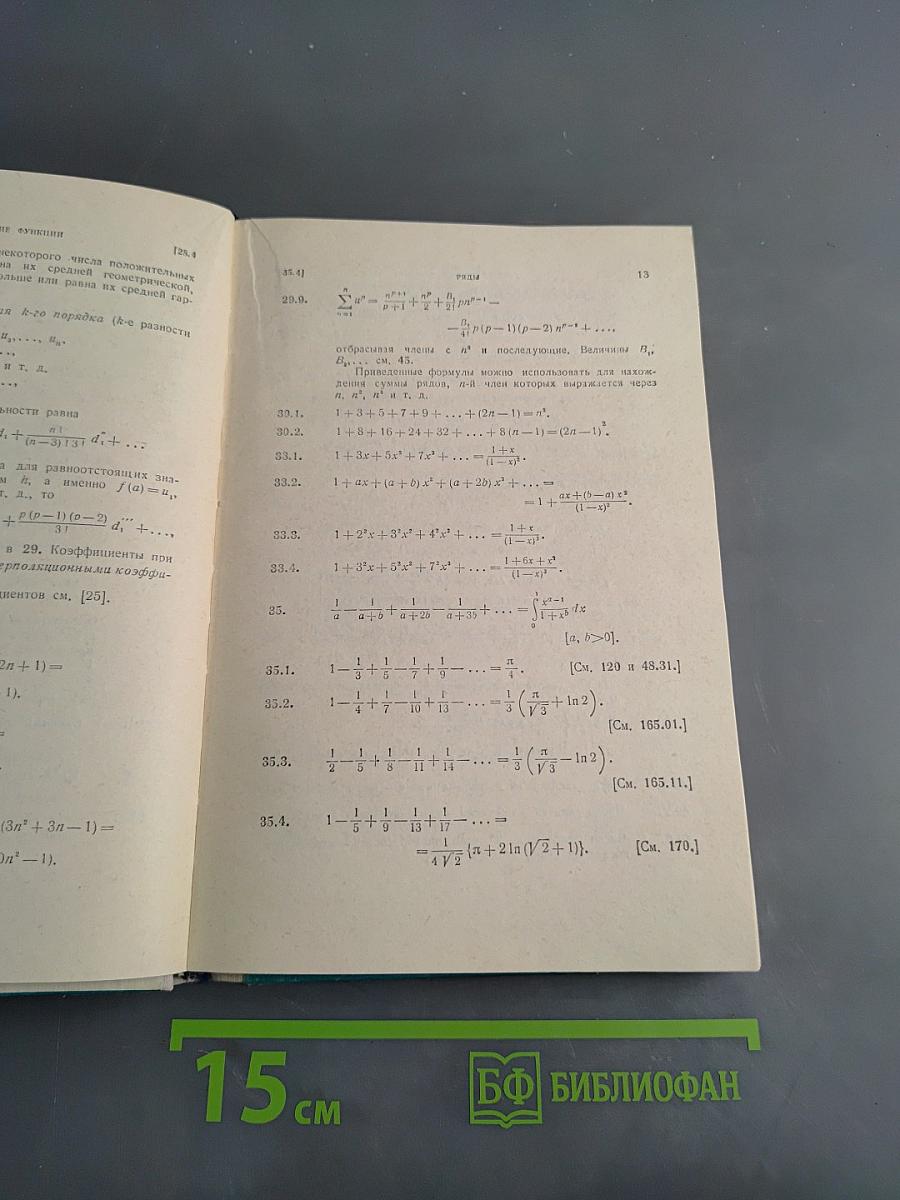 ИЕ ФУНКЦИИ [28.4
некоторого числа положительных
на их средней геометрической,
ольше или равна их средней гар-
ия k-го порядка (k-е разности
u₃, ..., uₙ,
и т. д.
ьности равна
d₁ + n!/((n—3)! 3!) d₁''' + ...
а для равноотстоящих зна-
м h, а именно f(a) = u₁,
т. д., то
+ p(p—1)(p—2)/3! d₁''' + ...,
в 29. Коэффициенты при
ерполяционными коэффи-
циентов см. [25].
2n + 1) =
1).
=
(3n² + 3n — 1) =
0n² — 1).
35.4] РЯДЫ 13
29.9. ∑ uᵖ = nᵖ⁺¹/(p+1) + nᵖ/2 + B₁/2! pnᵖ⁻¹ —
— B₂/4! p(p—1)(p—2) nᵖ⁻³ + ...,
отбрасывая члены с n⁰ и последующие. Величины B₁,
B₂,... см. 45.
Приведенные формулы можно использовать для нахож-
дения суммы рядов, n-й член которых выражается через
n, n², n³ и т. д.
30.1. 1 + 3 + 5 + 7 + 9 + ... + (2n — 1) = n².
30.2. 1 + 8 + 16 + 24 + 32 + ... + 8(n — 1) = (2n — 1)².
33.1. 1 + 3x + 5x² + 7x³ + ... = (1+x)/(1—x)².
33.2. 1 + ax + (a + b) x² + (a + 2b) x³ + ... =
= 1 + (ax + (b—a) x²)/(1—x)².
33.3. 1 + 2²x + 3²x² + 4²x³ + ... = (1+x)/(1—x)³.
33.4. 1 + 3²x + 5²x² + 7²x³ + ... = (1+6x+x²)/(1—x)³.
35. 1/a — 1/(a+b) + 1/(a+2b) — 1/(a+3b) + ... = ∫₀¹ xᵃ⁻¹/(1+xᵇ) dx
[a, b>0].
35.1. 1 — 1/3 + 1/5 — 1/7 + 1/9 — ... = π/4. [См. 120 и 48.31.]
35.2. 1 — 1/4 + 1/7 — 1/10 + 1/13 — ... = 1/3 (π/√3 + ln 2).
[См. 165.01.]
35.3. 1/2 — 1/5 + 1/8 — 1/11 + 1/14 — ... = 1/3 (π/√3 — ln 2).
[См. 165.11.]
35.4. 1 — 1/5 + 1/9 — 1/13 + 1/17 — ... =
= 1/(4√2) {π + 2 ln (√2 + 1)}. [См. 170.]
15 см
БФ БИБЛИОФАН